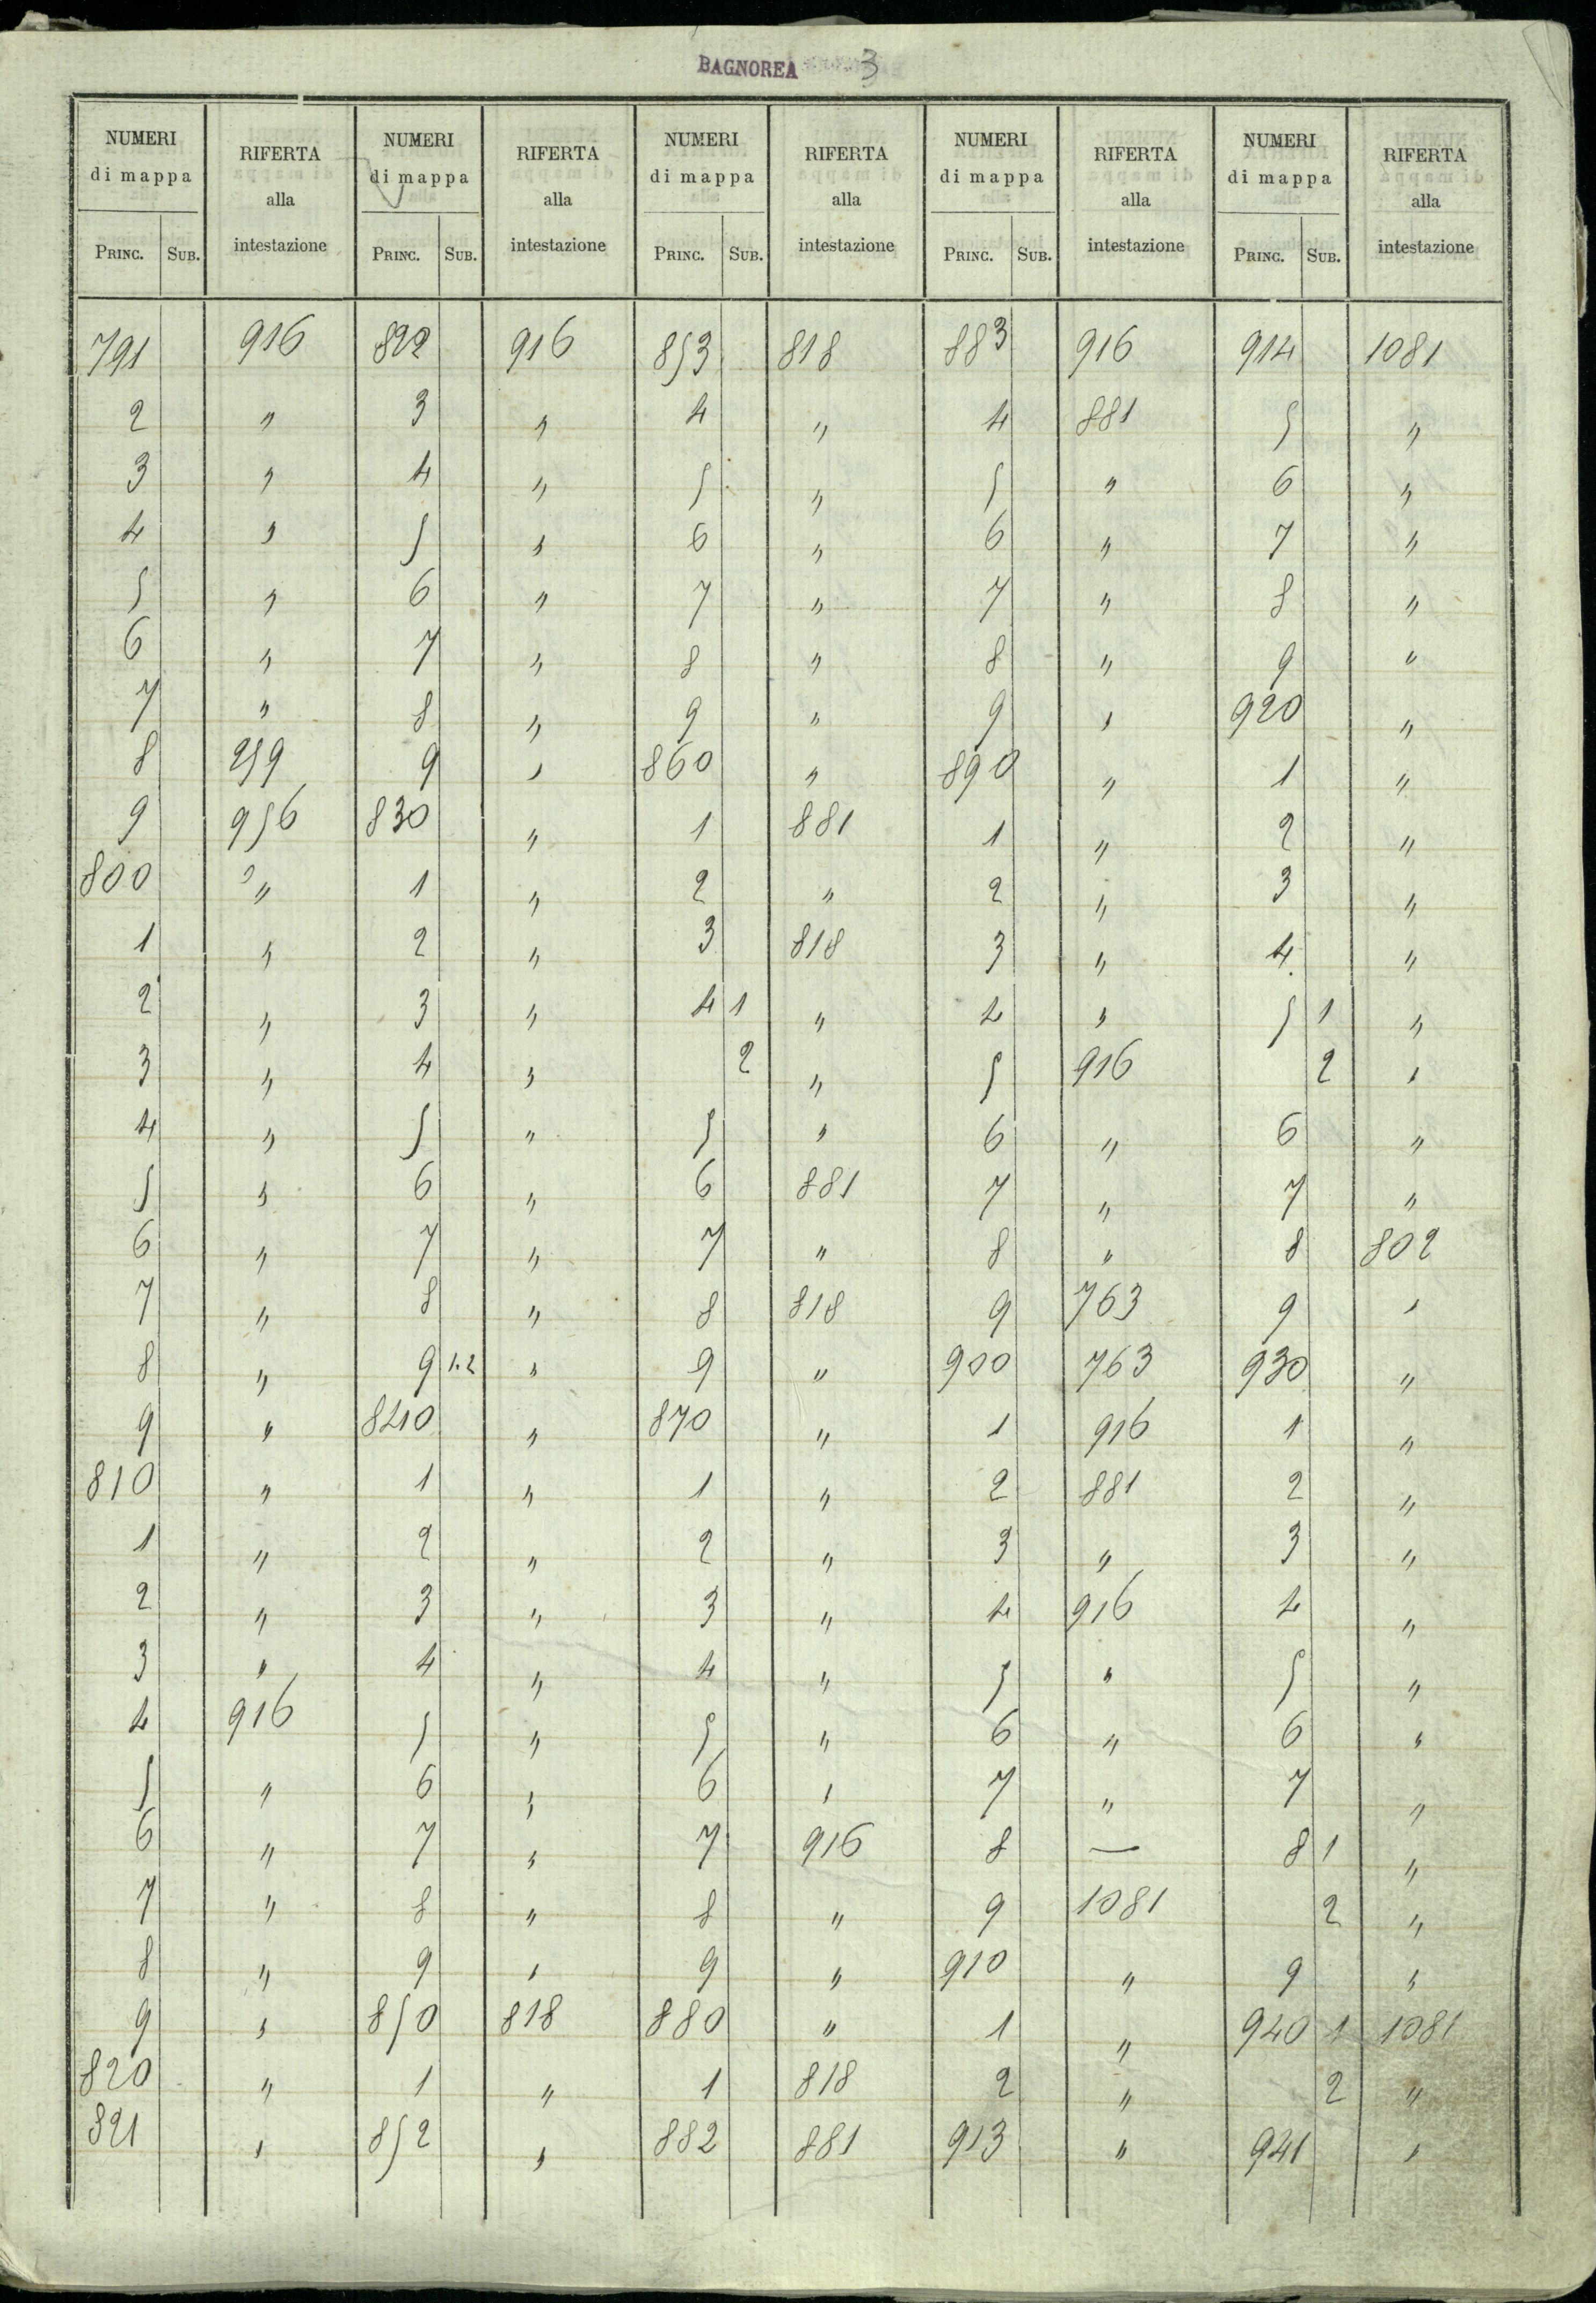 BAGNOREA 3
NUMERI NUMERI NUMERI NUMERI NUMERI
RIFERTA RIFERTA RIFERTA RIFERTA RIFERTA
di mappa di mappa di mappa di mappa di mappa
alla alla alla alla alla
intestazione intestazione intestazione intestazione intestazione
PRINC. SUB. PRINC. SUB. PRINC. SUB. PRINC. SUB. PRINC. SUB.
791 916 822 916 853 818 883 916 914 1081
2 " 3 " 4 " 4 881 5 "
3 " 4 " 5 " 5 " 6 "
4 " 5 " 6 " 6 " 7 "
5 " 6 " 7 " 7 " 8 "
6 " 7 " 8 " 8 " 9 "
7 " 8 " 9 " 9 " 920 "
8 259 9 " 860 " 890 " 1 "
9 956 830 " 1 881 1 " 2 "
800 " 1 " 2 " 2 " 3 "
1 " 2 " 3 818 3 " 4 "
2 " 3 " 4 1 " 4 " 5 1 "
3 " 4 " 2 " 5 916 2 "
4 " 5 " 5 " 6 " 6 "
5 " 6 " 6 881 7 " 7 "
6 " 7 " 7 " 8 " 8 802
7 " 8 " 8 818 9 763 9 "
8 " 9 1.2 " 9 " 900 763 930 "
9 " 840 " 870 " 1 916 1 "
810 " 1 " 1 " 2 881 2 "
1 " 2 " 2 " 3 " 3 "
2 " 3 " 3 " 4 916 4 "
3 " 4 " 4 " 5 " 5 "
4 916 5 " 5 " 6 " 6 "
5 " 6 " 6 " 7 " 7 "
6 " 7 " 7 916 8 — 8 1 "
7 " 8 " 8 " 9 1081 2 "
8 " 9 " 9 " 910 " 9 "
9 " 850 818 880 " 1 " 940 1 1081
820 " 1 " 1 818 2 " 2 "
821 " 852 " 882 881 913 " 941 "